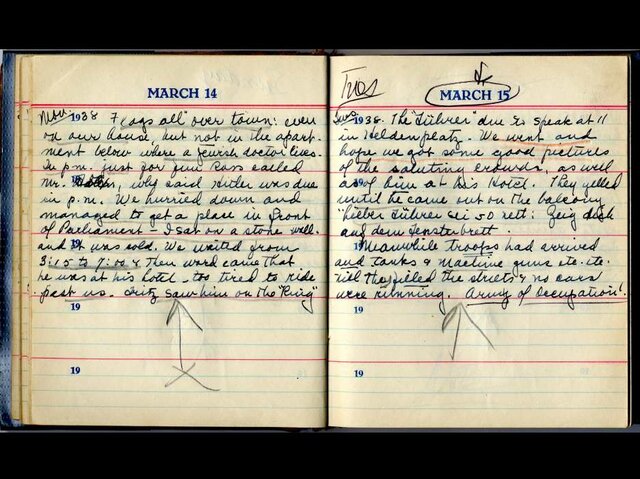 MARCH 14
Mon. 1938 Flags all over town: even
on our house, but not in the apart-
ment below where a Jewish doctor lives.
In p.m. just for fun Ross called
Mr. why said Hitler was due
in p.m. We hurried down and
managed to get a place in front
of Parliament - I sat on a stone wall
and it was cold. We waited from
3:15 to 7:00 & then word came that
he was at his hotel - too tired to ride
past us. Fritz saw him on the "Ring"
19
19
Tues
MARCH 15
Tues 1938. The "Führer" due to speak at 11
in Heldenplatz. We went and
hope we got some good pictures
of the saluting crowds, as well
as of him at his Hotel. They yelled
until he came out on the balcony
"lieber Führer sei so nett: Zeig dich
auf dem Fensterbrett.
Meanwhile troops had arrived
and tanks & machine guns etc. etc.
till they filled the streets & no cars
were running. Army of Occupation!
19
19